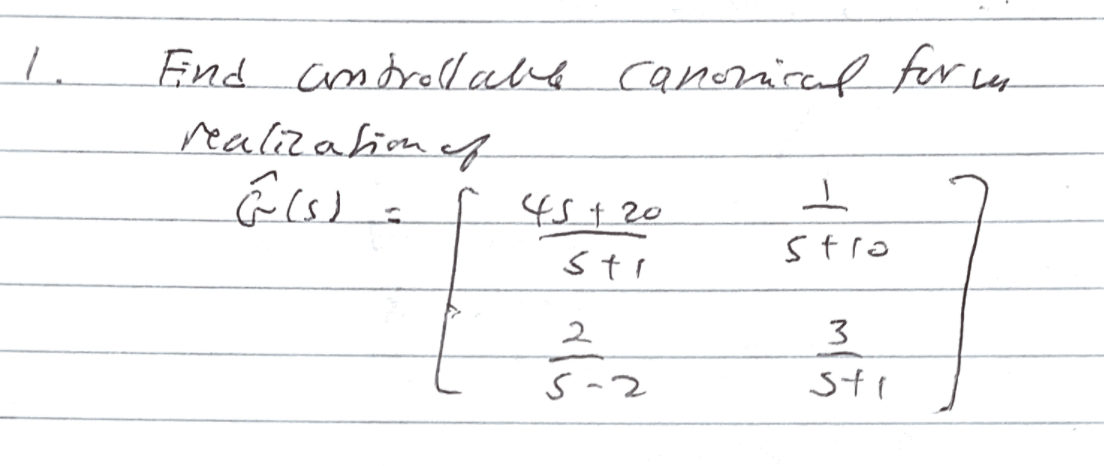 1. Find controllable canonical form
realization of
Ĝ(s) = [ (4s+20)/(s+1)  1/(s+10)
2/(s-2)  3/(s+1) ]